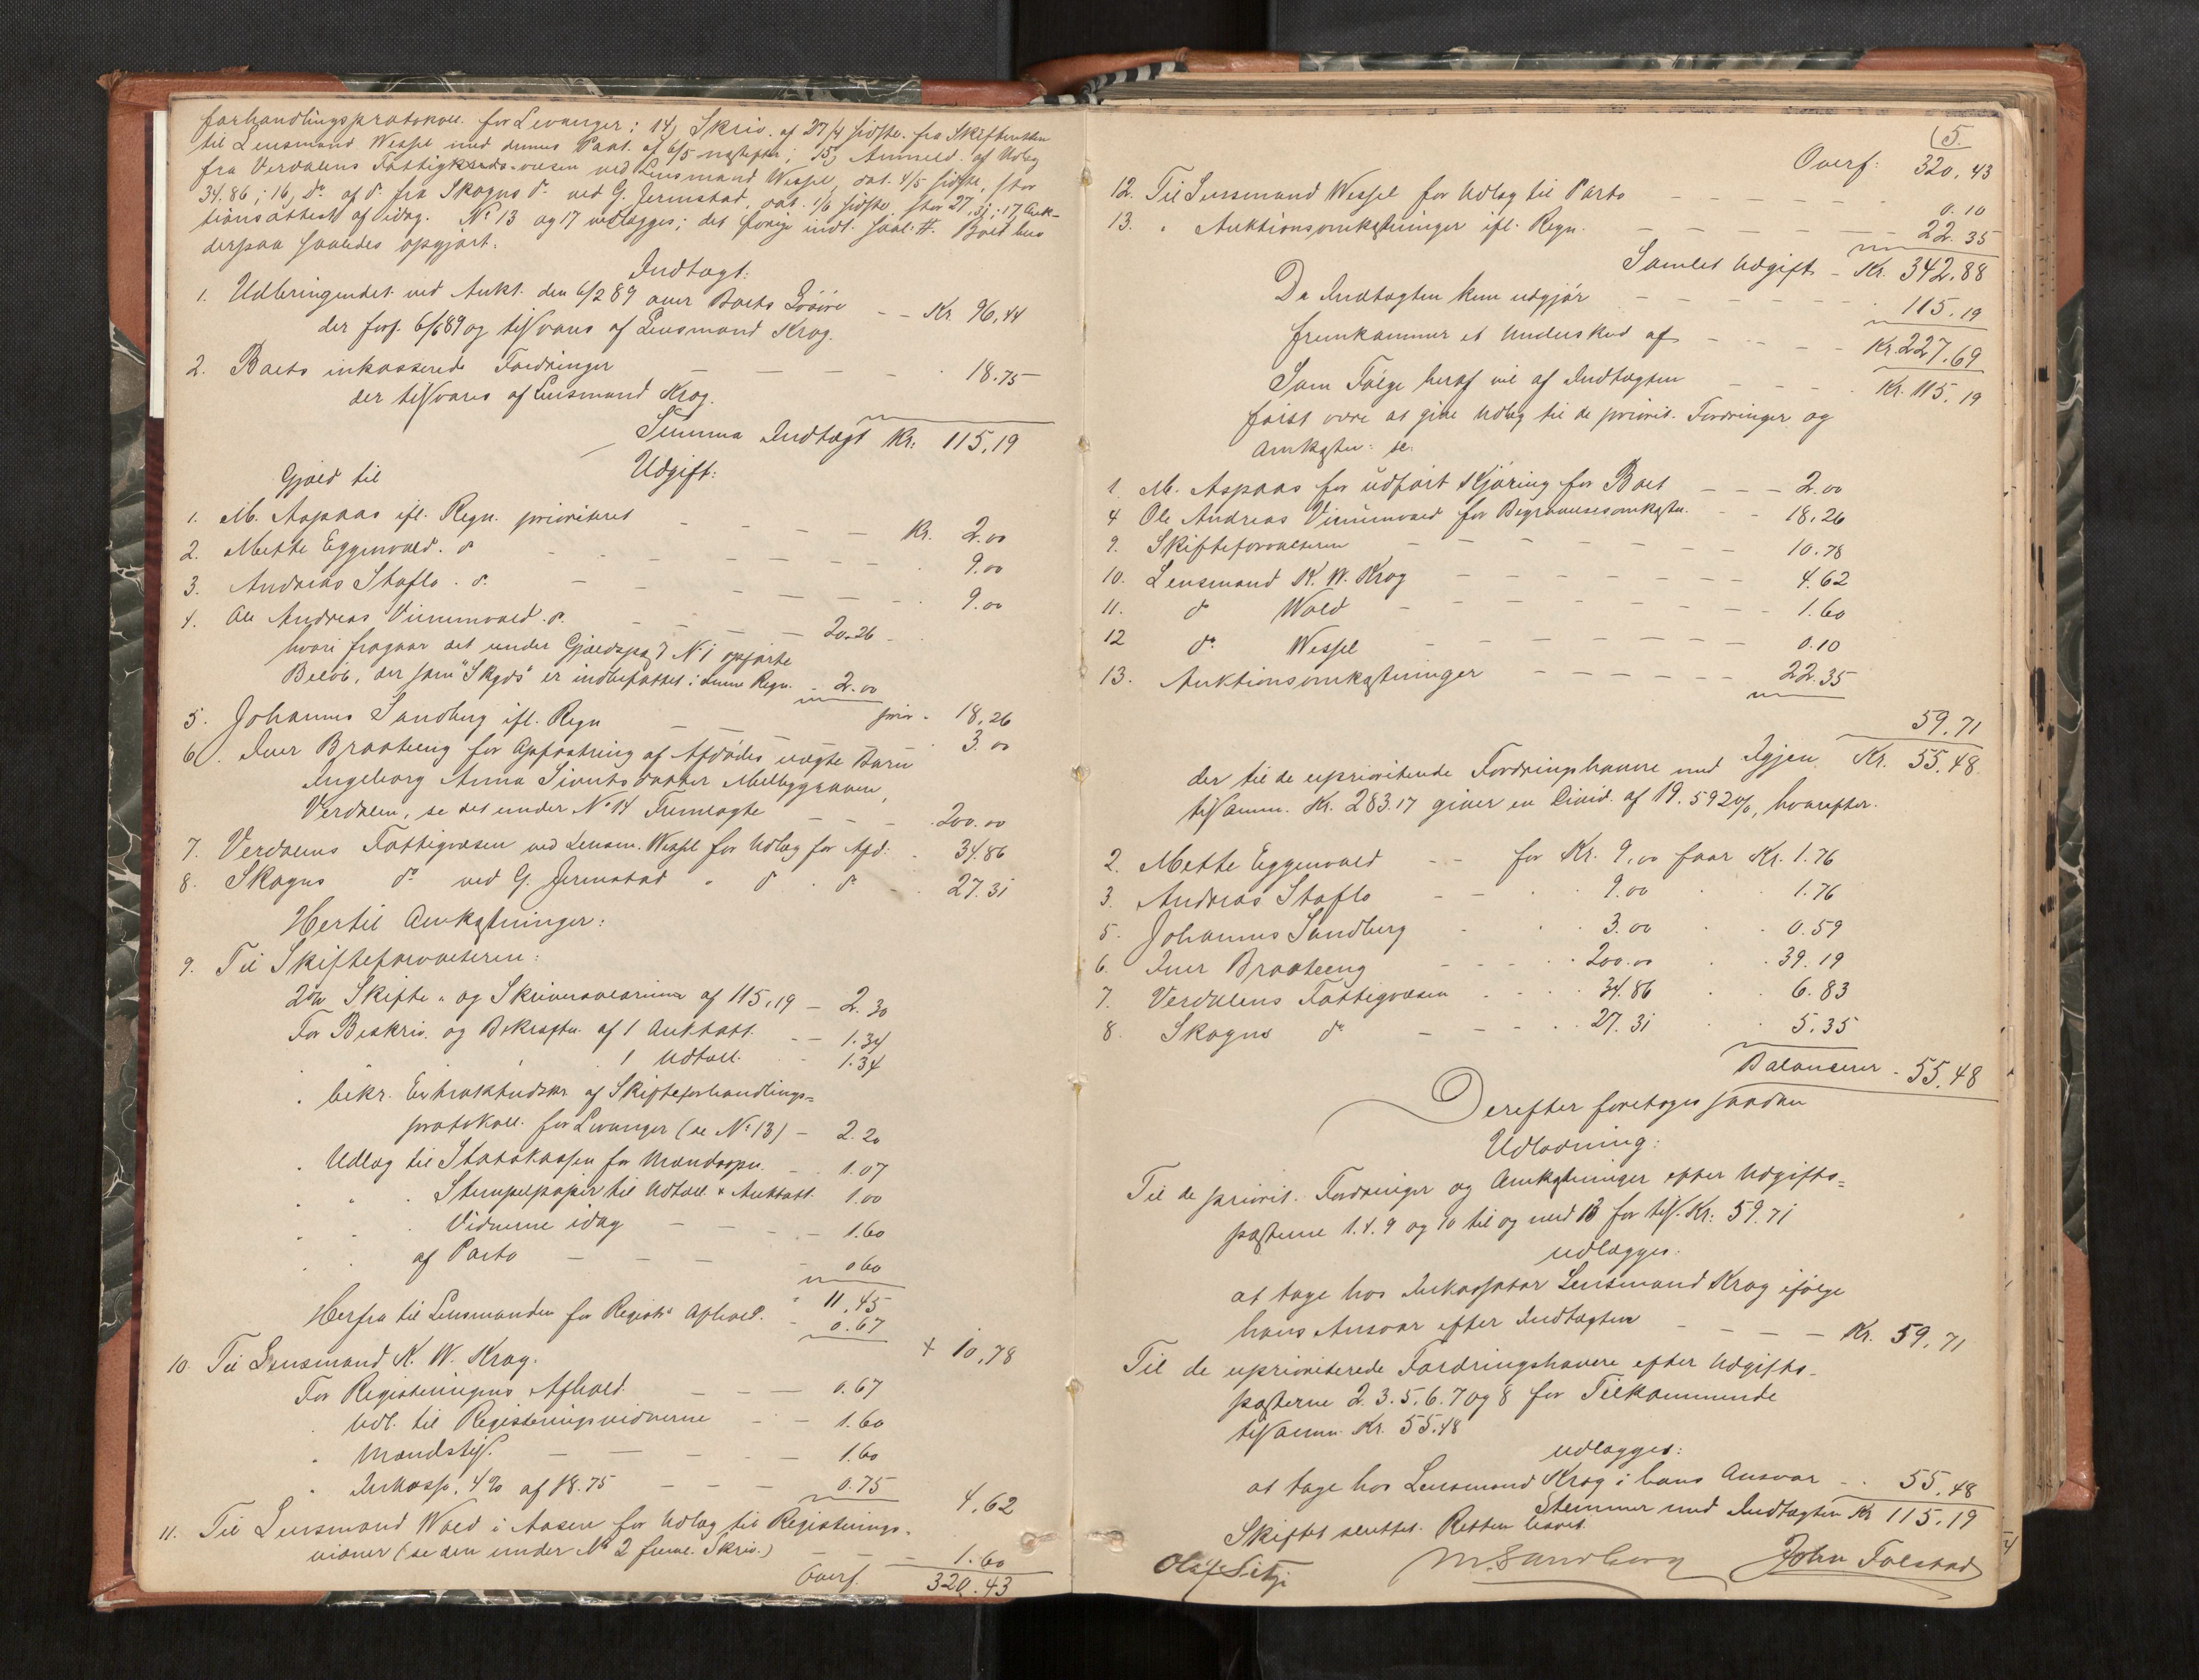 forhandlingsprotokoll for Levanger; 14) Skriv. af 27/4 sidstl. fra Skifteretten
til Lensmand Wessel med dennes Paat. af 6/5 næstefter; 15) Anmeld. af Udlæg
fra Verdalens Fattigvæsen ved Lensmand Wessel, dat. 4/5 sidstl., stor
34.86; 16) Do af do fra Skogns do ved G. Jermstad, dat. 1/6 sidstl. stor 27,31; 17) Auk-
tionsattest af idag. No 13 og 17 vedlægges; det øvrige indt. saal. #. Boet blev
derpaa saaledes opgjort:
Indtægt:
1. Udbringendet ved Aukt. den 6/2 89 over Boets Løsøre
der forf. 6/6 89 og tilsvares af Lensmand Krog. - - Kr. 96,44
2. Boets inkasserede Fordringer - - - - - 18.75
der tilsvares af Lensmand Krog.
Summa Indtægt Kr. 115,19
Udgift:
Gjæld til
1. M. Aspaas ifl. Regn. prioriteret - - - Kr. 2.00
2. Mette Eggenvald. do - - - - - 9.00
3. Andreas Staflo. do. - - - - - 9.00
4. Ole Andreas Vinumvald. do. - - - - 20.26
hvori fragaar det under Gjældspost No 1 opførte
Beløb, der som "Skyds" er indbefattet i denne Regn. - 2.00
prior. 18,26
5. Johannes Sandberg ifl. Regn - - - 3.00
6. Iver Braateeng for Opfostring af Afdødes uægte Barn
Ingeborg Anna Sivertsdatter Melbygraven,
Verdalen, se det under No 14 Fremlagte - - - 200.00
7. Verdalens Fattigvæsen ved Lensm. Wessel for Udlæg for Afd. - 34.86
8. Skogns do ved G. Jermstad " do . do - 27.31
Hertil Omkostninger:
9. Til Skifteforvalteren:
2% Skifte- og Skriversalarium af 115,19 - 2.30
For Beskriv. og Bekræftn. af 1 Auktatt. - - 1.34
" " 1 Udtoll. - - 1.34
" bekr. Extraktudskr. af Skifteforhandlings=
protokoll. for Levanger (se No 13) - 2.20
" Udlæg til Statskassen for Mandsopn. - - 1.07
" " " Stempelpapir til Udtoll. & Auktatt. 1.00
" " " Vidnerne idag - - - - 1.60
" " af Porto - - - - 0.60
11,45
Herfra til Lensmanden for Registr. Afhold. - 0.67
+ 10,78
10. Til Lensmand K. W. Krog.
For Registeringens Afhold. - - - 0.67
" Udl. til Registeringsvidnerne - - 1.60
" Mandstils. - - - - 1.60
" Inkasso, 4% af 18.75 - - - 0.75
4,62
11. Til Lensmand Wold i Aasen for Udlæg til Registerings-
vidner (se den under No 2 freml. Skriv.) - - - 1.60
Overf. 320.43
5.
Overf: 320,43
12. Til Lensmand Wessel for Udlæg til Porto - - - - - 0.10
13. " Auktionsomkostninger ifl. Regn. - - - - - 22.35
Samlet Udgift - Kr. 342.88
Da Indtægten kun udgjør - - - - - 115.19
fremkommer et Underskud af - - - - Kr. 227.69
Som Følge heraf vil af Indtægten - - - Kr. 115.19
først være at give Udlæg til de priorit. Fordringer og
Omkostn. se:
1. M. Aspaas for udført Kjøring for Boet - - - 2.00
4 Ole Andreas Vinumvald for Begravelsesomkostn. - - 18.26
9. Skifteforvalteren - - - - - - 10.78
10. Lensmand K. W. Krog - - - - - - 4.62
11. do Wold - - - - - - - 1.60
12 do Wessel - - - - - - 0.10
13. Auktionsomkostninger - - - - - - 22.35
59,71
Igjen. Kr. 55,48.
der til de uprioriterede Fordringshavere med
tilsamm. Kr. 283.17 giver en Divid. af 19.592%, hvorefter.
2. Mette Eggenvald - - for Kr. 9,00 faar Kr. 1.76
3. Andreas Staflo - - " 9.00 " 1.76
5. Johannes Sandberg " " 3.00 " 0.59
6. Iver Braateeng - - - " 200.00 " 39.19
7. Verdalens Fattigvæsen - - - " 34.86 " 6.83
8. Skogns do - - - " 27.31 " 5.35
Balancerer - 55,48
Derefter foretoges saadan
Udlodning:
Til de priorit. Fordringer og Omkostninger efter Udgifts=
posterne 1.4.9 og 10 til og med 13 for tils. Kr. 59.71
udlægges:
at tage hos Inkassator Lensmand Krog ifølge
hans Ansvar efter Indtægten - - - - Kr. 59,71
Til de uprioriterede Fordringshavere efter Udgifts-
posterne 2.3.5.6.7 og 8 for Tilkommende
tilsamm. Kr. 55.48
udlægges:
at tage hos Lensmand Krog i hans Ansvar - - 55,48
Stemmer med Indtægten Kr 115,19
Skiftet sluttet. Retten hævet.
M. Sandberg John Tolstad